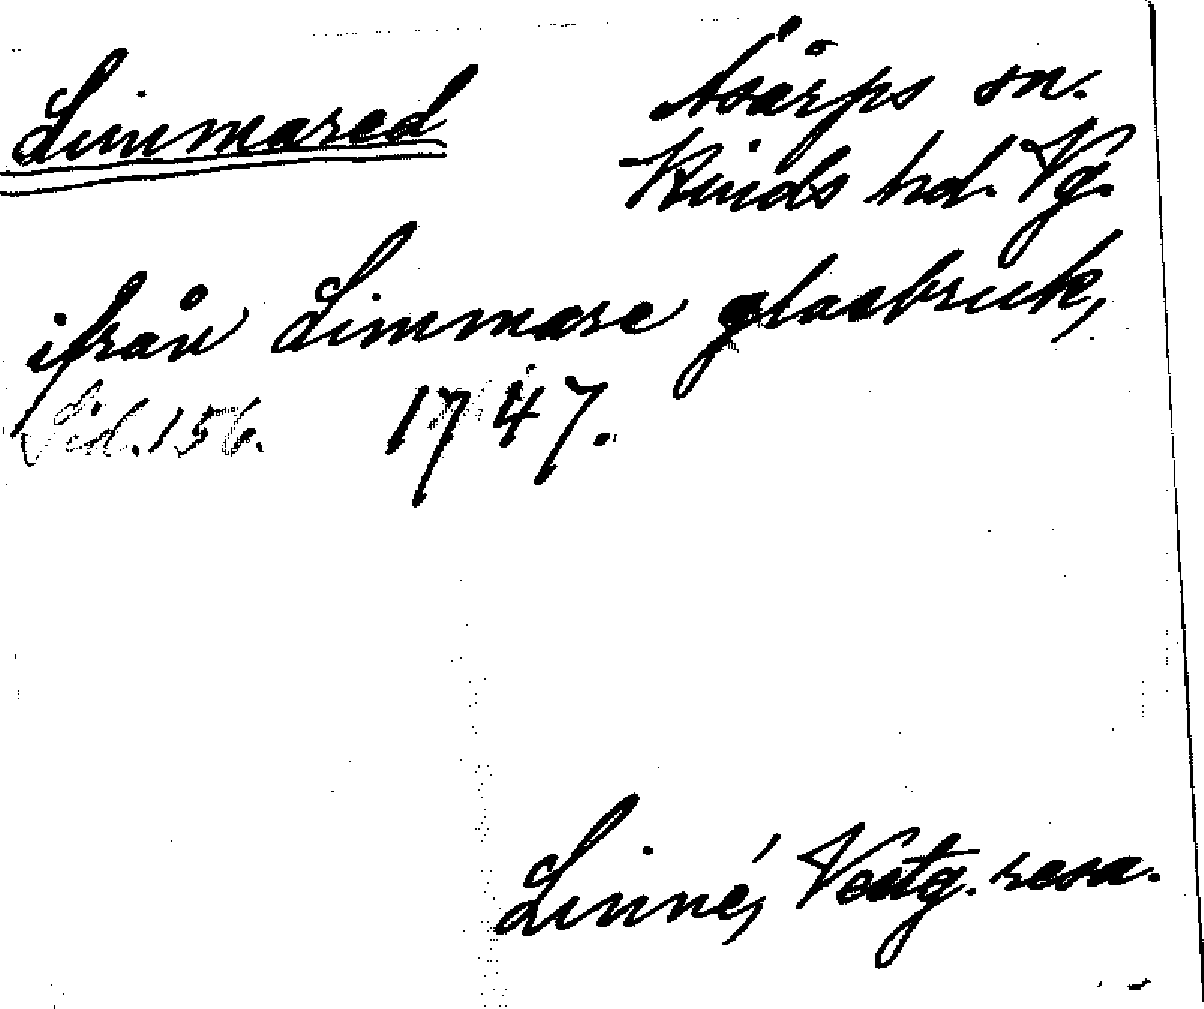 Limmared
Åsarps sn.
Kinds hd. Vg.
ifrån Limmare glasbruk,
Sid. 156. 1747.
Linné, Vestg. resa.